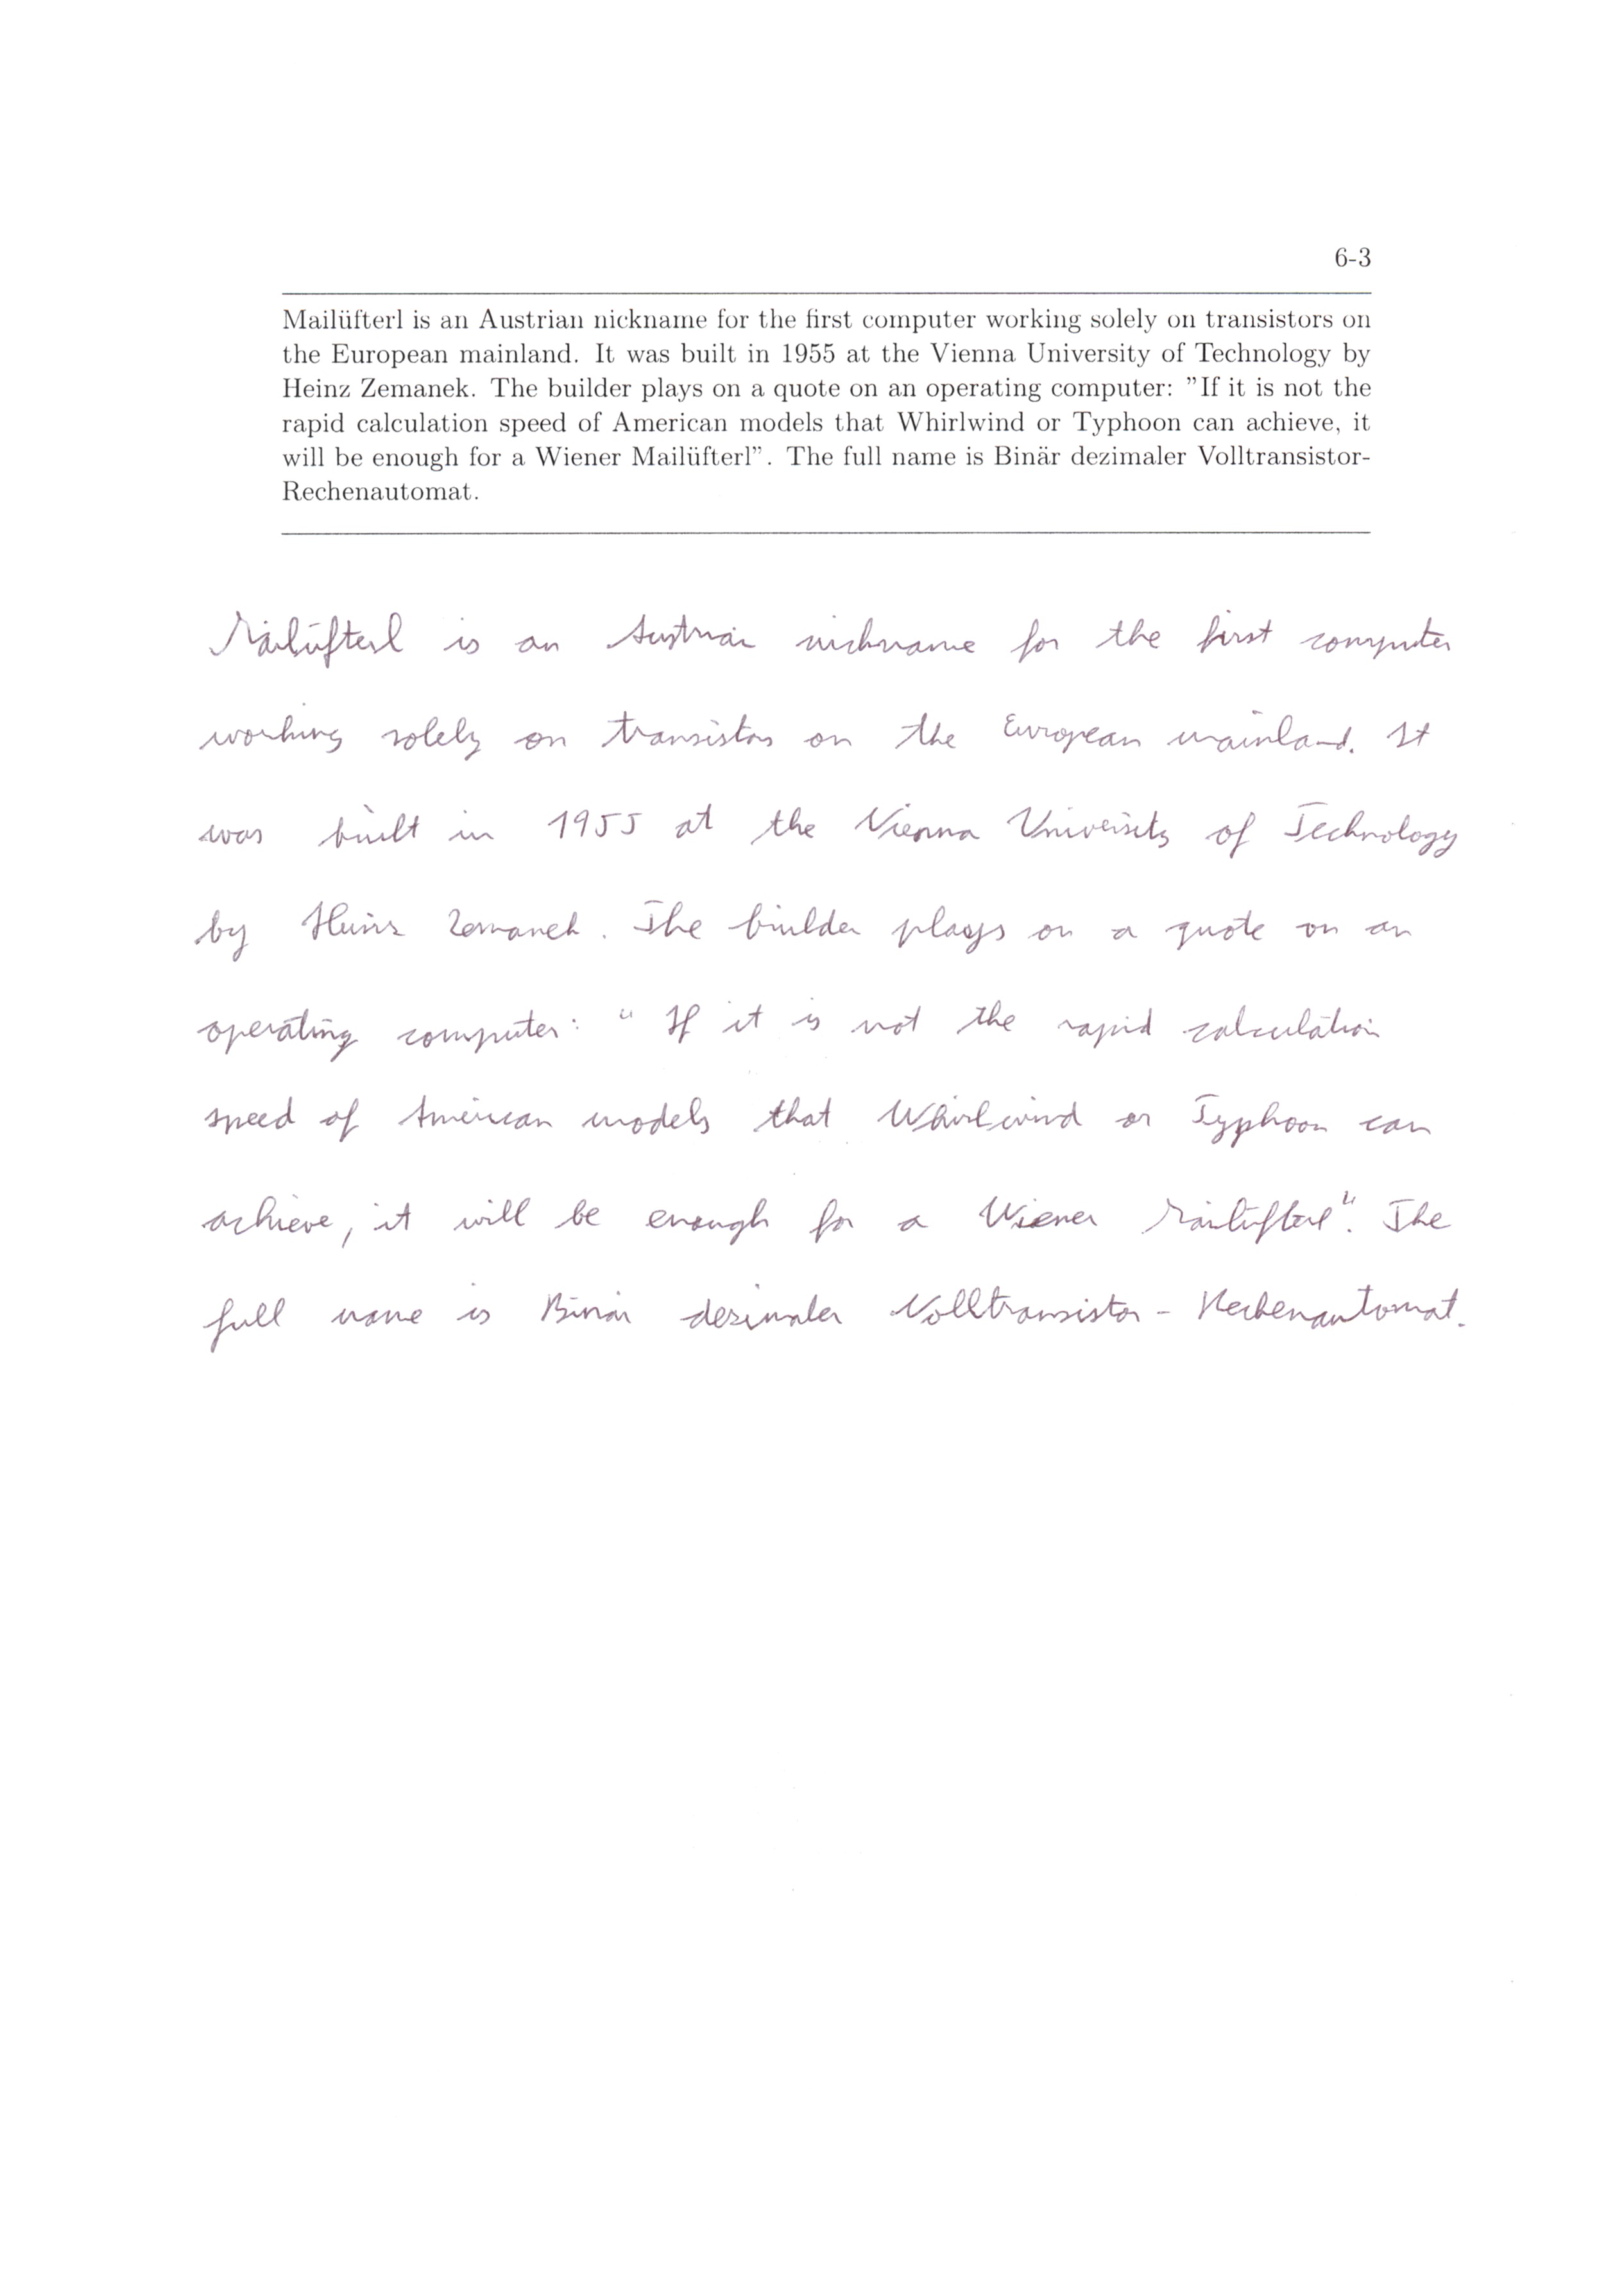 6-3
Mailüfterl is an Austrian nickname for the first computer working solely on transistors on
the European mainland. It was built in 1955 at the Vienna University of Technology by
Heinz Zemanek. The builder plays on a quote on an operating computer: ”If it is not the
rapid calculation speed of American models that Whirlwind or Typhoon can achieve, it
will be enough for a Wiener Mailüfterl”. The full name is Binär dezimaler Volltransistor-
Rechenautomat.
Mailüfterl is an Austrian nickname for the first computer
working solely on transistors on the European mainland. It
was built in 1955 at the Vienna University of Technology
by Heinz Zemanek. The builder plays on a quote on an
operating computer: "If it is not the rapid calculation
speed of American models that Whirlwind or Typhoon can
achieve, it will be enough for a Wiener Mailüfterl". The
full name is Binär dezimaler Volltransistor - Rechenautomat.